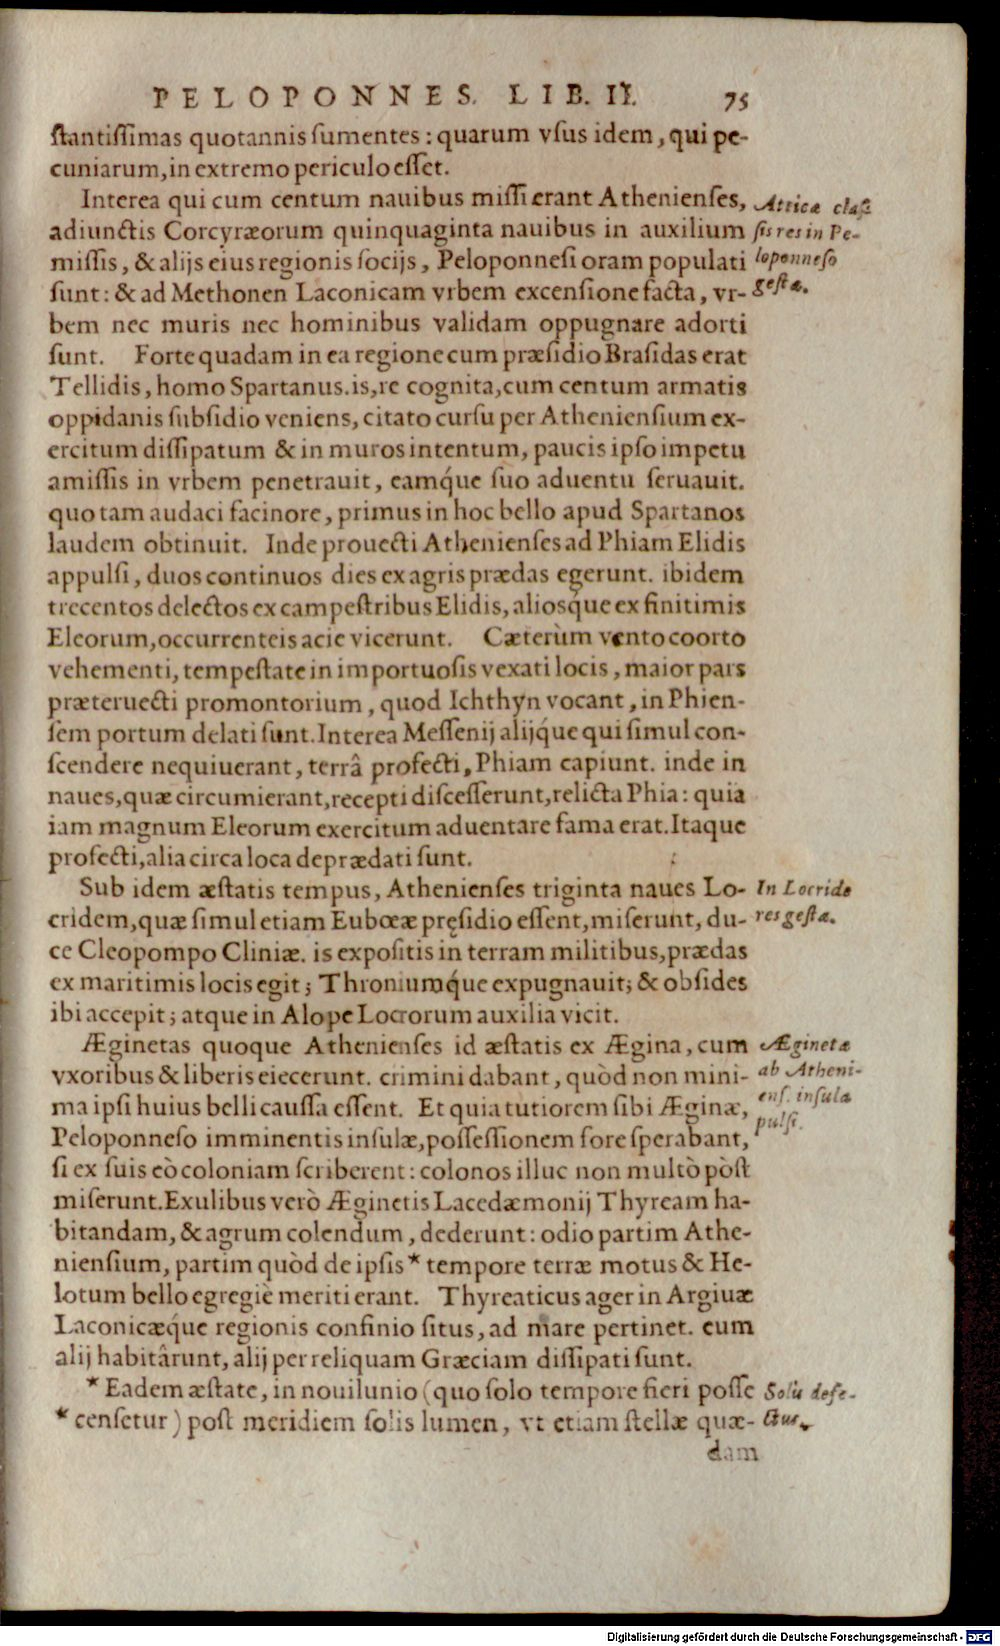 PELOPONNES. LIB. II. 75
stantissimas quotannis sumentes: quarum vsus idem, qui pe-
cuniarum, in extremo periculo esset.
Interea qui cum centum nauibus missi erant Athenienses,
adiunctis Corcyræorum quinquaginta nauibus in auxilium
missis, & alijs eius regionis socijs, Peloponnesi oram populati
sunt: & ad Methonen Laconicam vrbem excensione facta, vr-
bem nec muris nec hominibus validam oppugnare adorti
sunt. Forte quadam in ea regione cum præsidio Brasidas erat
Tellidis, homo Spartanus. is, re cognita, cum centum armatis
oppidanis subsidio veniens, citato cursu per Atheniensium ex-
ercitum dissipatum & in muros intentum, paucis ipso impetu
amissis in vrbem penetrauit, eamq́ue suo aduentu seruauit.
quo tam audaci facinore, primus in hoc bello apud Spartanos
laudem obtinuit. Inde prouecti Athenienses ad Phiam Elidis
appulsi, duos continuos dies ex agris prædas egerunt. ibidem
trecentos delectos ex campestribus Elidis, aliosq́ue ex finitimis
Eleorum, occurrenteis acie vicerunt. Cæterùm vento coorto
vehementi, tempestate in importuosis vexati locis, maior pars
præteruecti promontorium, quod Ichthyn vocant, in Phien-
sem portum delati sunt. Interea Messenij alijq́ue qui simul con-
scendere nequiuerant, terrâ profecti, Phiam capiunt. inde in
naues, quæ circumierant, recepti discesserunt, relicta Phia: quia
iam magnum Eleorum exercitum aduentare fama erat. Itaque
profecti, alia circa loca deprædati sunt.
Sub idem æstatis tempus, Athenienses triginta naues Lo-
cridem, quæ simul etiam Eubœæ pręsidio essent, miserunt, du-
ce Cleopompo Cliniæ. is expositis in terram militibus, prædas
ex maritimis locis egit; Throniumq́ue expugnauit; & obsides
ibi accepit; atque in Alope Locrorum auxilia vicit.
Æginetas quoque Athenienses id æstatis ex Ægina, cum
vxoribus & liberis eiecerunt. crimini dabant, quòd non mini-
ma ipsi huius belli caussa essent. Et quia tutiorem sibi Æginæ,
Peloponneso imminentis insulæ, possessionem fore sperabant,
si ex suis eò coloniam scriberent: colonos illuc non multò pòst
miserunt. Exulibus verò Æginetis Lacedæmonij Thyream ha-
bitandam, & agrum colendum, dederunt: odio partim Athe-
niensium, partim quòd de ipsis * tempore terræ motus & He-
lotum bello egregiè meriti erant. Thyreaticus ager in Argiuæ
Laconicæq́ue regionis confinio situs, ad mare pertinet. eum
alij habitârunt, alij per reliquam Græciam dissipati sunt.
* Eadem æstate, in nouilunio (quo solo tempore fieri posse
* censetur) post meridiem solis lumen, vt etiam stellæ quæ-
dam
Atticæ clas-
sis res in Pe-
loponneso
gestæ.
In Locride
res gestæ.
Æginetæ
ab Atheni-
ens. insula
pulsi.
Solis defe-
ctus.
Digitalisierung gefördert durch die Deutsche Forschungsgemeinschaft - DFG